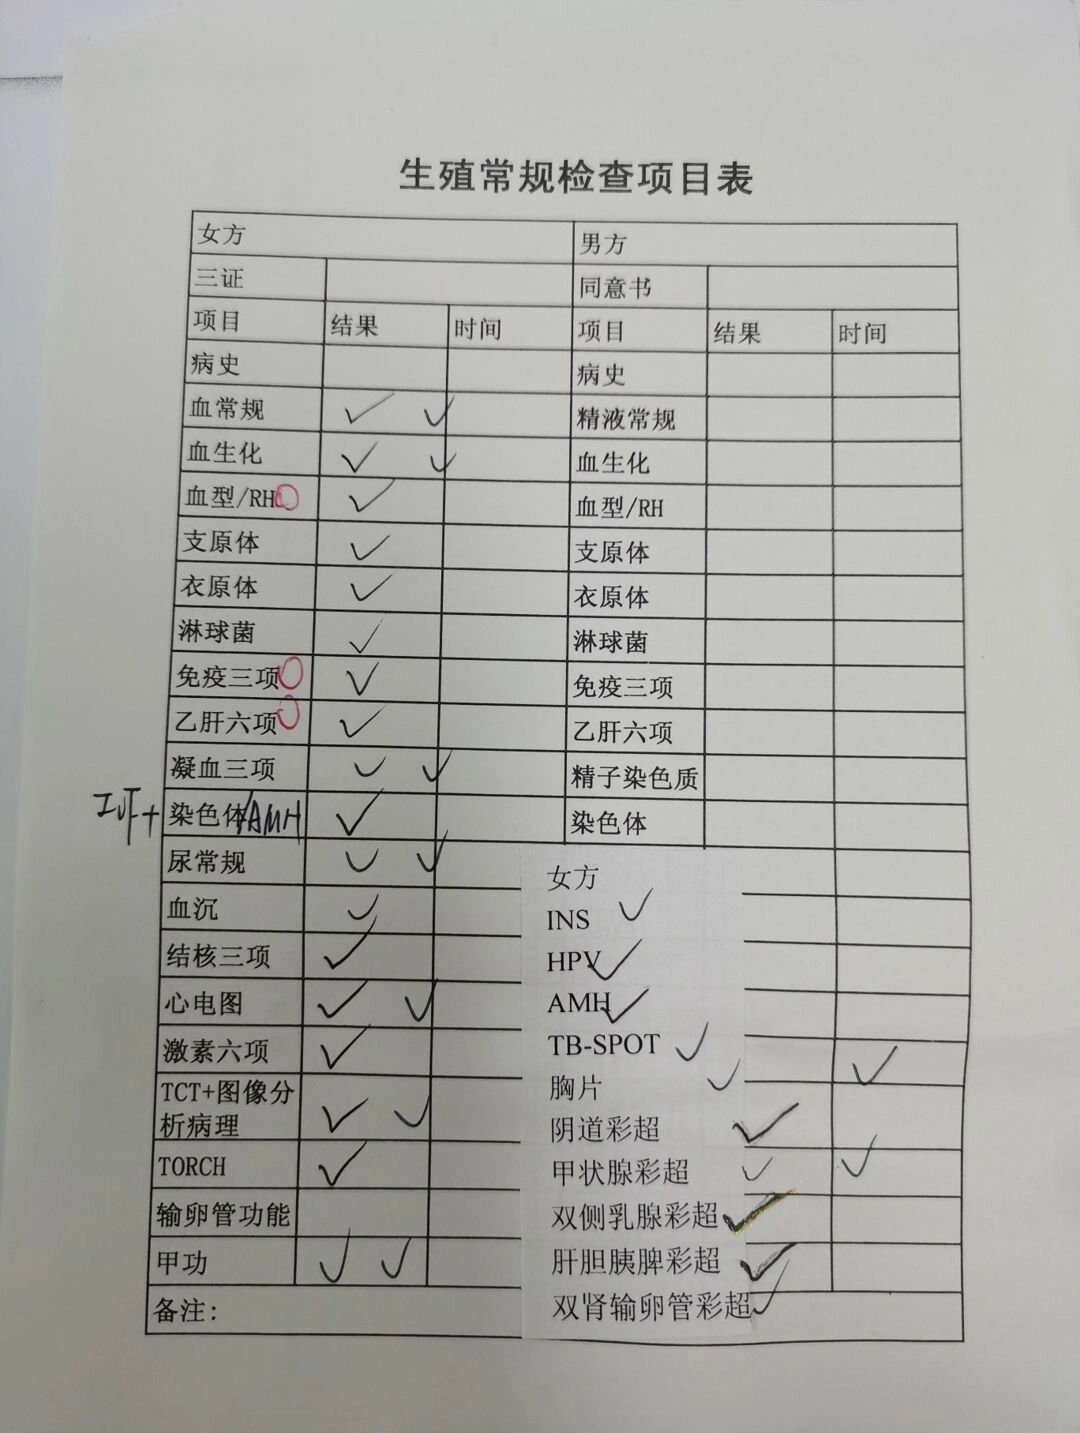 生殖常规检查项目表
女方 男方
三证 同意书
项目 结果 时间 项目 结果 时间
病史 病史
血常规 精液常规
血生化 血生化
血型/RH 血型/RH
支原体 支原体
衣原体 衣原体
淋球菌 淋球菌
免疫三项 免疫三项
乙肝六项 乙肝六项
凝血三项 精子染色质
IVF+ 染色体/AMH 染色体
尿常规
血沉
结核三项
心电图
激素六项
TCT+图像分
析病理
TORCH
输卵管功能
甲功
备注:
女方
INS
HPV
AMH
TB-SPOT
胸片
阴道彩超
甲状腺彩超
双侧乳腺彩超
肝胆胰脾彩超
双肾输卵管彩超